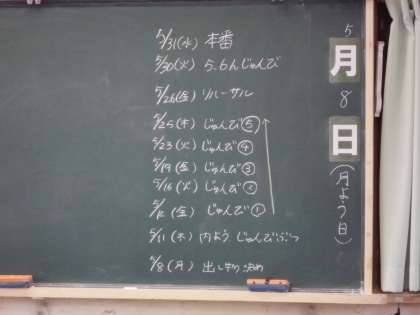 5/31(水) 本番
5/30(火) 5.6んじゅんび
5/26(金) リハーサル
5/25(木) じゅんび⑤
5/23(火) じゅんび④
5/19(金) じゅんび③
5/16(火) じゅんび②
5/12(金) じゅんび①
5/11(木) 内よう じゅんびぶつ
5/8(月) 出し物 決め
5
月
8
日
(月よう日)